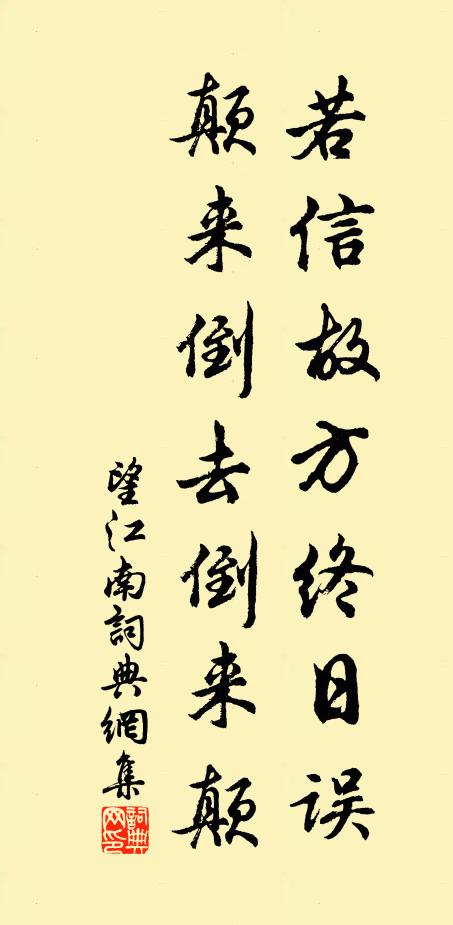 若信故方终日误
颠来倒去倒来颠
望江南詞典網集
詞典
网印